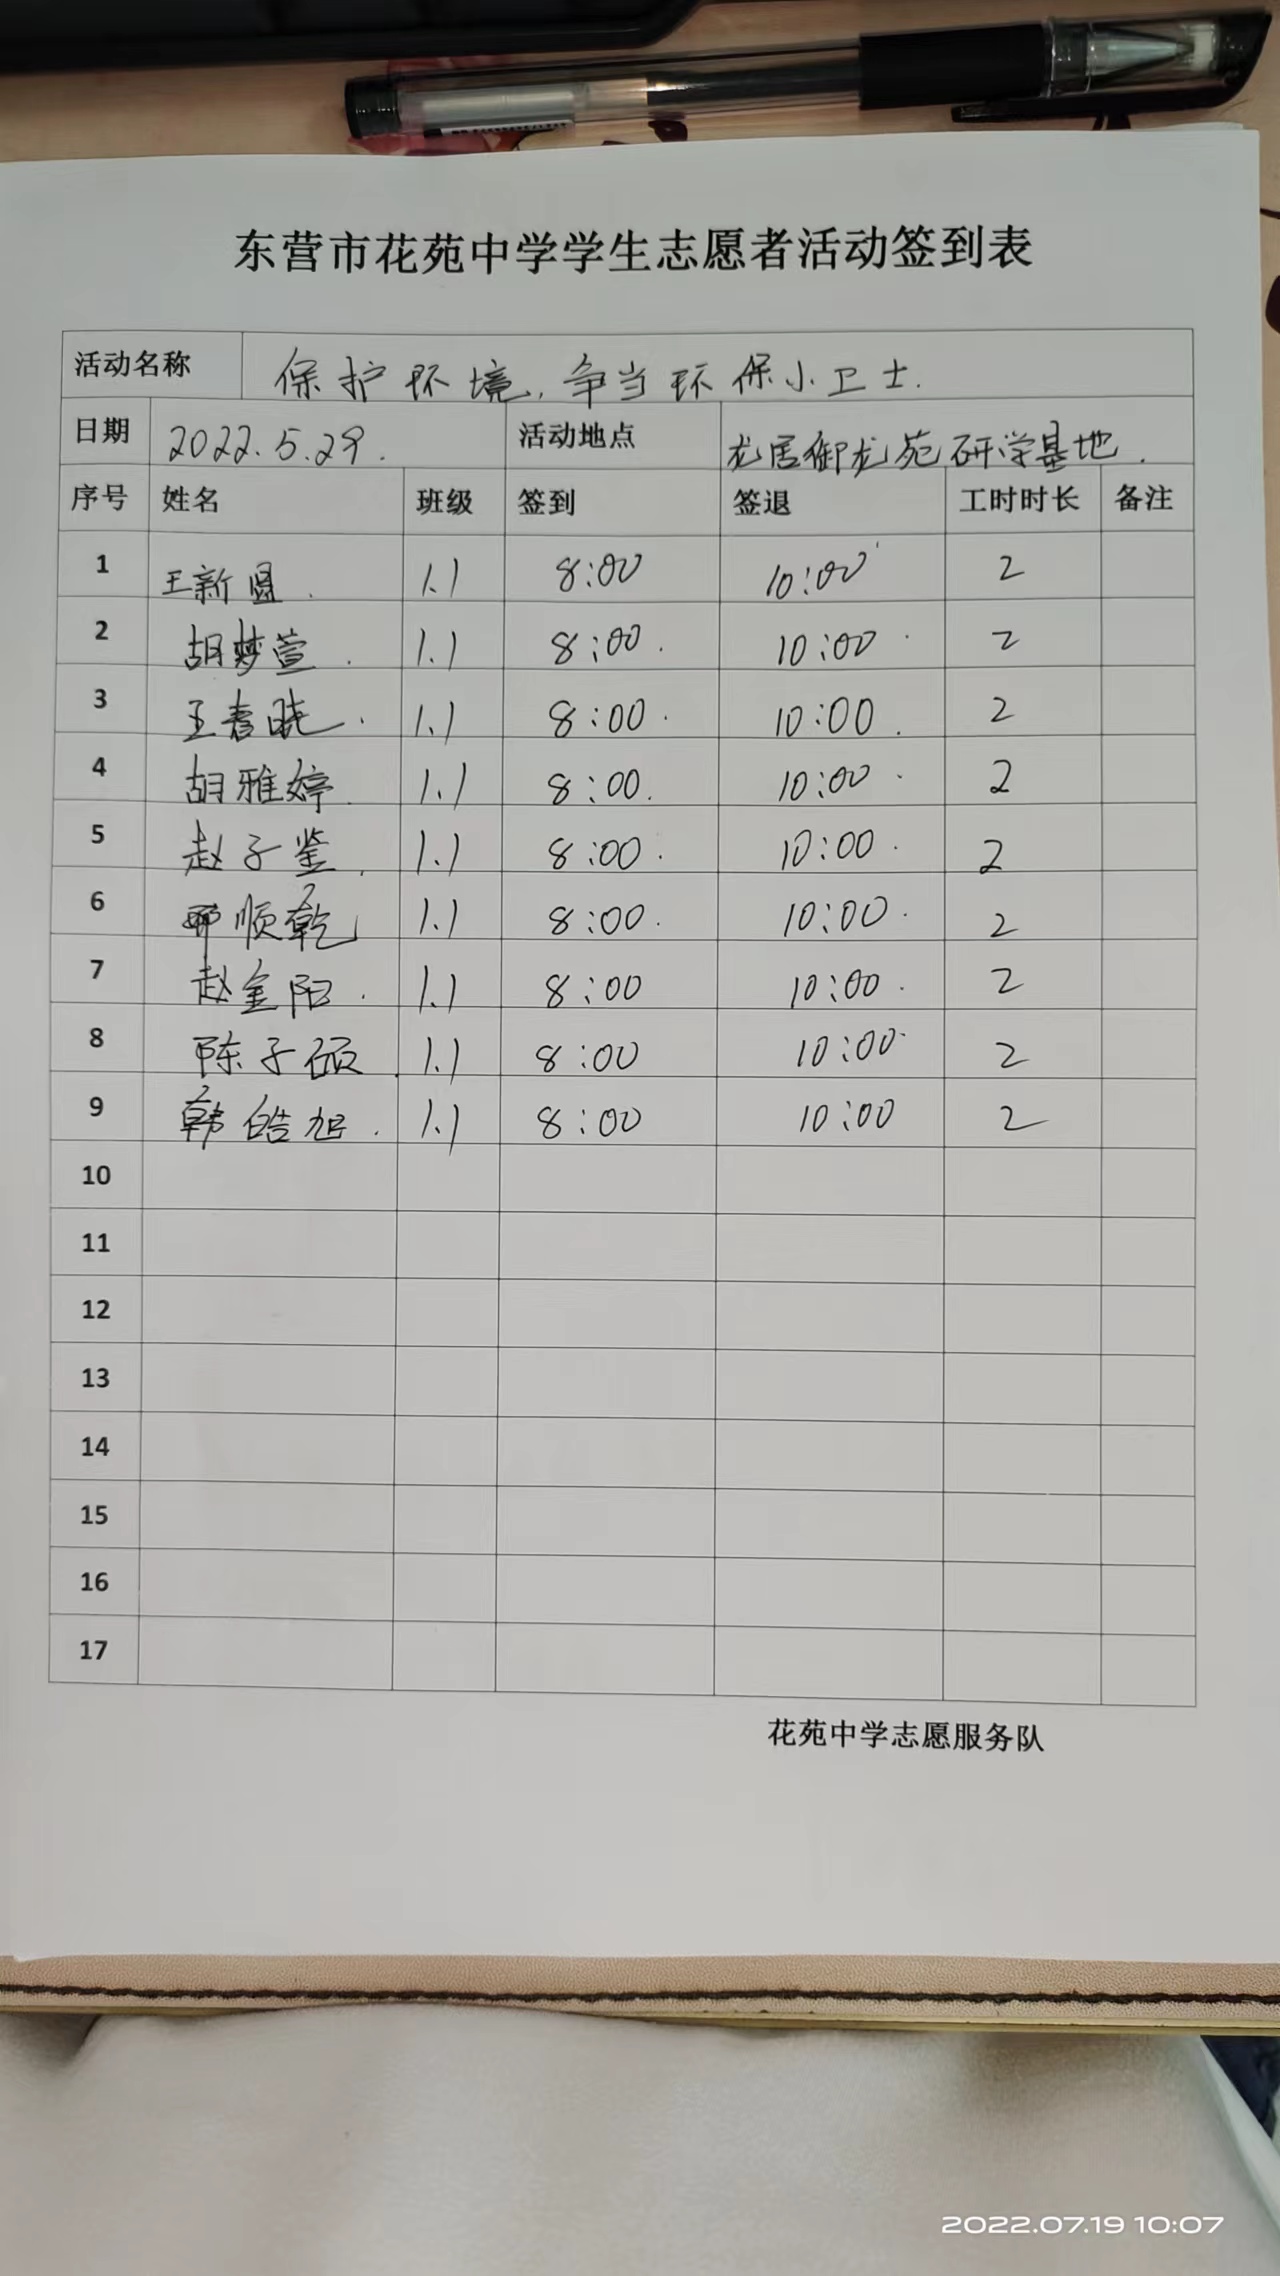 东营市花苑中学学生志愿者活动签到表
活动名称 保护环境,争当环保小卫士.
日期 2022.5.29. 活动地点 龙居御龙苑研学基地.
序号 姓名 班级 签到 签退 工时时长 备注
1 王新 1.1 8:00 10:00 2
2 胡梦萱. 1.1 8:00. 10:00. 2
3 王春晓. 1.1 8:00. 10:00. 2
4 胡雅婷. 1.1 8:00. 10:00. 2
5 赵子鉴. 1.1 8:00. 10:00. 2
6 邢顺乾 1.1 8:00. 10:00. 2
7 赵金阳. 1.1 8:00 10:00. 2
8 陈子硕. 1.1 8:00 10:00. 2
9 韩皓旭. 1.1 8:00 10:00 2
10
11
12
13
14
15
16
17
花苑中学志愿服务队
2022.07.19 10:07